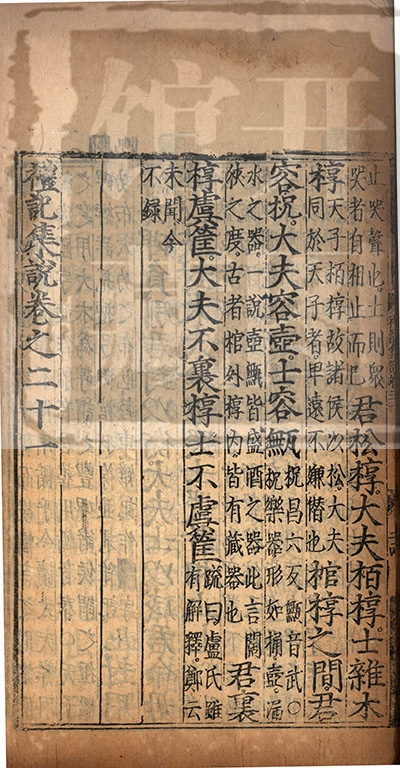 止哭聲也士則眾
哭者自相止而已
君松椁大夫栢椁士雜木
椁
天子栢椁故諸侯以松大夫
同於天子者卑遠不嫌僭也
棺椁之間君
容柷大夫容壺士容甒
柷昌六反甒音武○
柷樂器形如桶壺漏
水之器一說壺甒皆盛酒之器此言闊
狹之度古者棺外椁內皆有藏器也
君裏
椁虞筐大夫不裏椁士不虞筐
疏曰盧氏雖
有解釋鄭云
未聞今
不錄
禮記集說卷之二十一